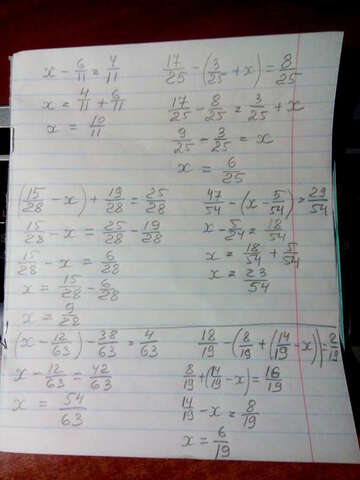 x - 6/11 = 4/11
x = 4/11 + 6/11
x = 10/11
17/25 - (3/25 + x) = 8/25
17/25 - 8/25 = 3/25 + x
9/25 - 3/25 = x
x = 6/25
(15/28 - x) + 19/28 = 25/28
15/28 - x = 25/28 - 19/28
15/28 - x = 6/28
x = 15/28 - 6/28
x = 9/28
47/54 - (x - 5/54) = 29/54
x - 5/54 = 18/54
x = 18/54 + 5/54
x = 23/54
(x - 12/63) - 38/63 = 4/63
x - 12/63 = 42/63
x = 54/63
18/19 - (8/19 + (14/19 - x)) = 2/19
8/19 + (14/19 - x) = 16/19
14/19 - x = 8/19
x = 6/19